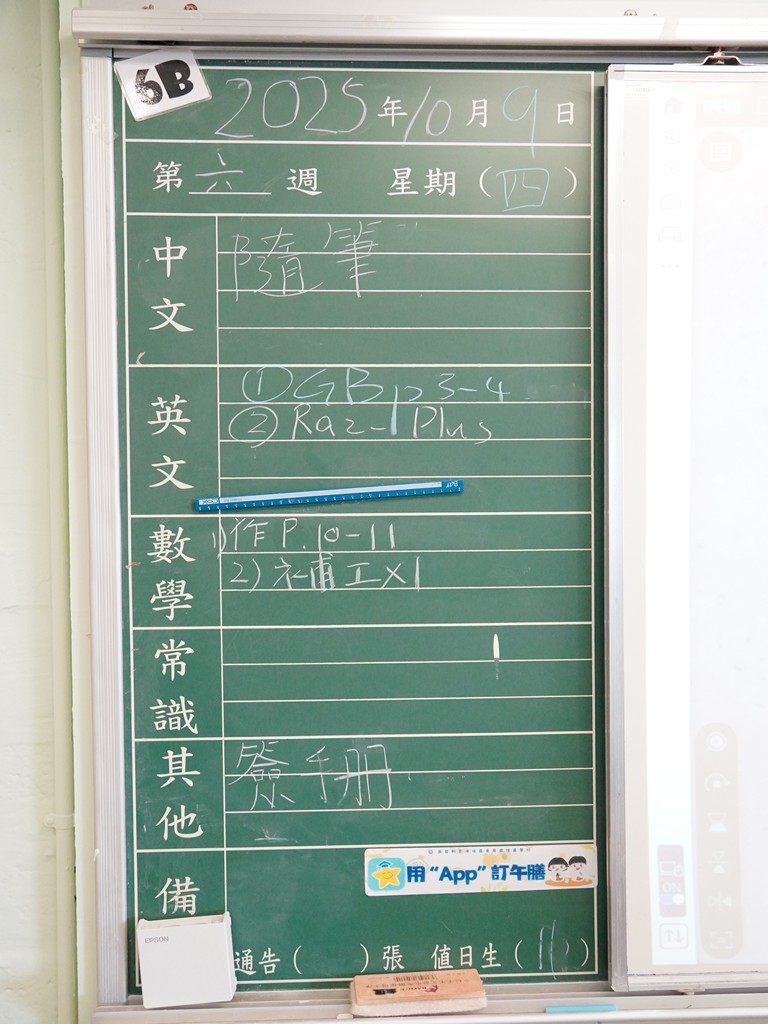 6B
2025年10月9日
第六週 星期（四）
中文
隨筆
英文
① GB p 3-4
② Raz-Plus
數學
1) 作 P.10-11
2) 補工x1
常識
其他
簽手冊
備
用“App”訂午膳
EPSON
通告（ ）張 值日生（ ）